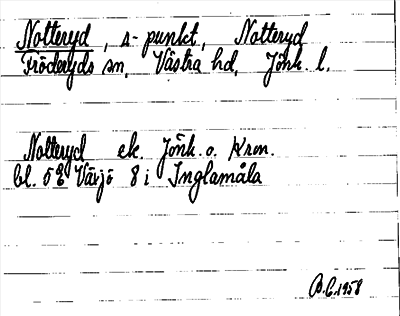 Notteryd, s-punkt, Notteryd
Fröderyds sn, Västra hd, Jönk. l.
Notteryd ek. Jönk. o. Kron.
bl. 5 Växjö 8 i Inglamåla
B.C. 1958